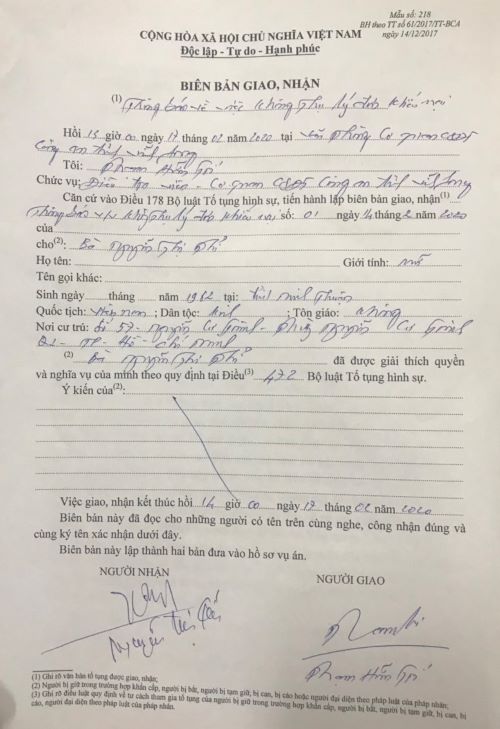 Mẫu số: 218
BH theo TT số 61/2017/TT-BCA
ngày 14/12/2017
CỘNG HÒA XÃ HỘI CHỦ NGHĨA VIỆT NAM
Độc lập - Tự do - Hạnh phúc
BIÊN BẢN GIAO, NHẬN
(1) Thông báo về việc không thụ lý đơn khiếu nại
Hồi 13 giờ 00 ngày 17 tháng 02 năm 2020 tại Văn Phòng Cơ quan CSĐT
Công an tỉnh Vĩnh Long
Tôi: Phạm
Chức vụ: Điều tra viên - Cơ quan CSĐT Công an tỉnh Vĩnh Long
Căn cứ vào Điều 178 Bộ luật Tố tụng hình sự, tiến hành lập biên bản giao, nhận(1)
Thông báo v/v không thụ lý đơn khiếu nại số: 01 ngày 14 tháng 2 năm 2020
của
cho(2): Bà Nguyễn Thị
Họ tên: Giới tính: nữ
Tên gọi khác:
Sinh ngày tháng năm 1962 tại: Ninh Thuận
Quốc tịch: Việt Nam; Dân tộc: kinh; Tôn giáo: không
Nơi cư trú: Số 57 - Nguyễn Cư Trinh - Phường Nguyễn Cư Trinh
Q1 - TP - Hồ - Chí Minh
(2) Bà Nguyễn Thị đã được giải thích quyền
và nghĩa vụ của mình theo quy định tại Điều(3) 472 Bộ luật Tố tụng hình sự.
Ý kiến của(2):
Việc giao, nhận kết thúc hồi 14 giờ 00 ngày 17 tháng 02 năm 2020
Biên bản này đã đọc cho những người có tên trên cùng nghe, công nhận đúng và
cùng ký tên xác nhận dưới đây.
Biên bản này lập thành hai bản đưa vào hồ sơ vụ án.
NGƯỜI NHẬN
NGƯỜI GIAO
Nguyễn
Phạm
(1) Ghi rõ văn bản tố tụng được giao, nhận;
(2) Người bị giữ trong trường hợp khẩn cấp, người bị bắt, người bị tạm giữ, bị can, bị cáo hoặc người đại diện theo pháp luật của pháp nhân;
(3) Ghi rõ điều luật quy định về tư cách tham gia tố tụng của người bị giữ trong trường hợp khẩn cấp, người bị bắt, người bị tạm giữ, bị can, bị
cáo, người đại diện theo pháp luật của pháp nhân.